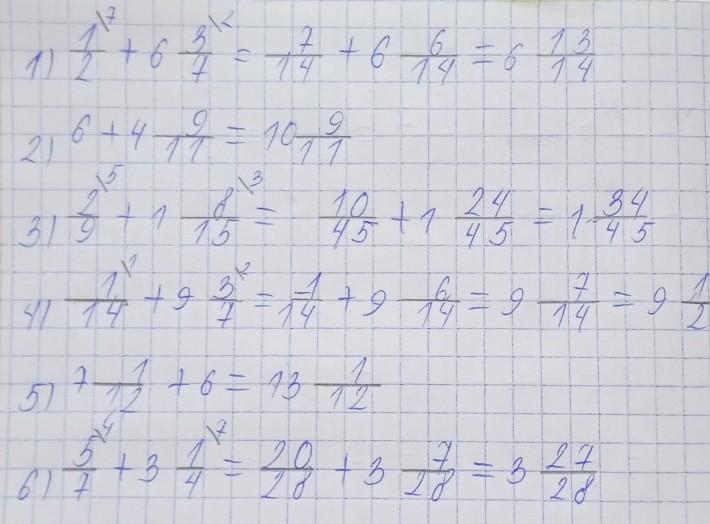 1) 1/2 \7 + 6 3/7 \2 = 7/14 + 6 6/14 = 6 13/14
2) 6 + 4 9/11 = 10 9/11
3) 2/9 \5 + 1 8/15 \3 = 10/45 + 1 24/45 = 1 34/45
4) 1/14 \1 + 9 3/7 \2 = 1/14 + 9 6/14 = 9 7/14 = 9 1/2
5) 7 1/12 + 6 = 13 1/12
6) 5/7 \4 + 3 1/4 \7 = 20/28 + 3 7/28 = 3 27/28